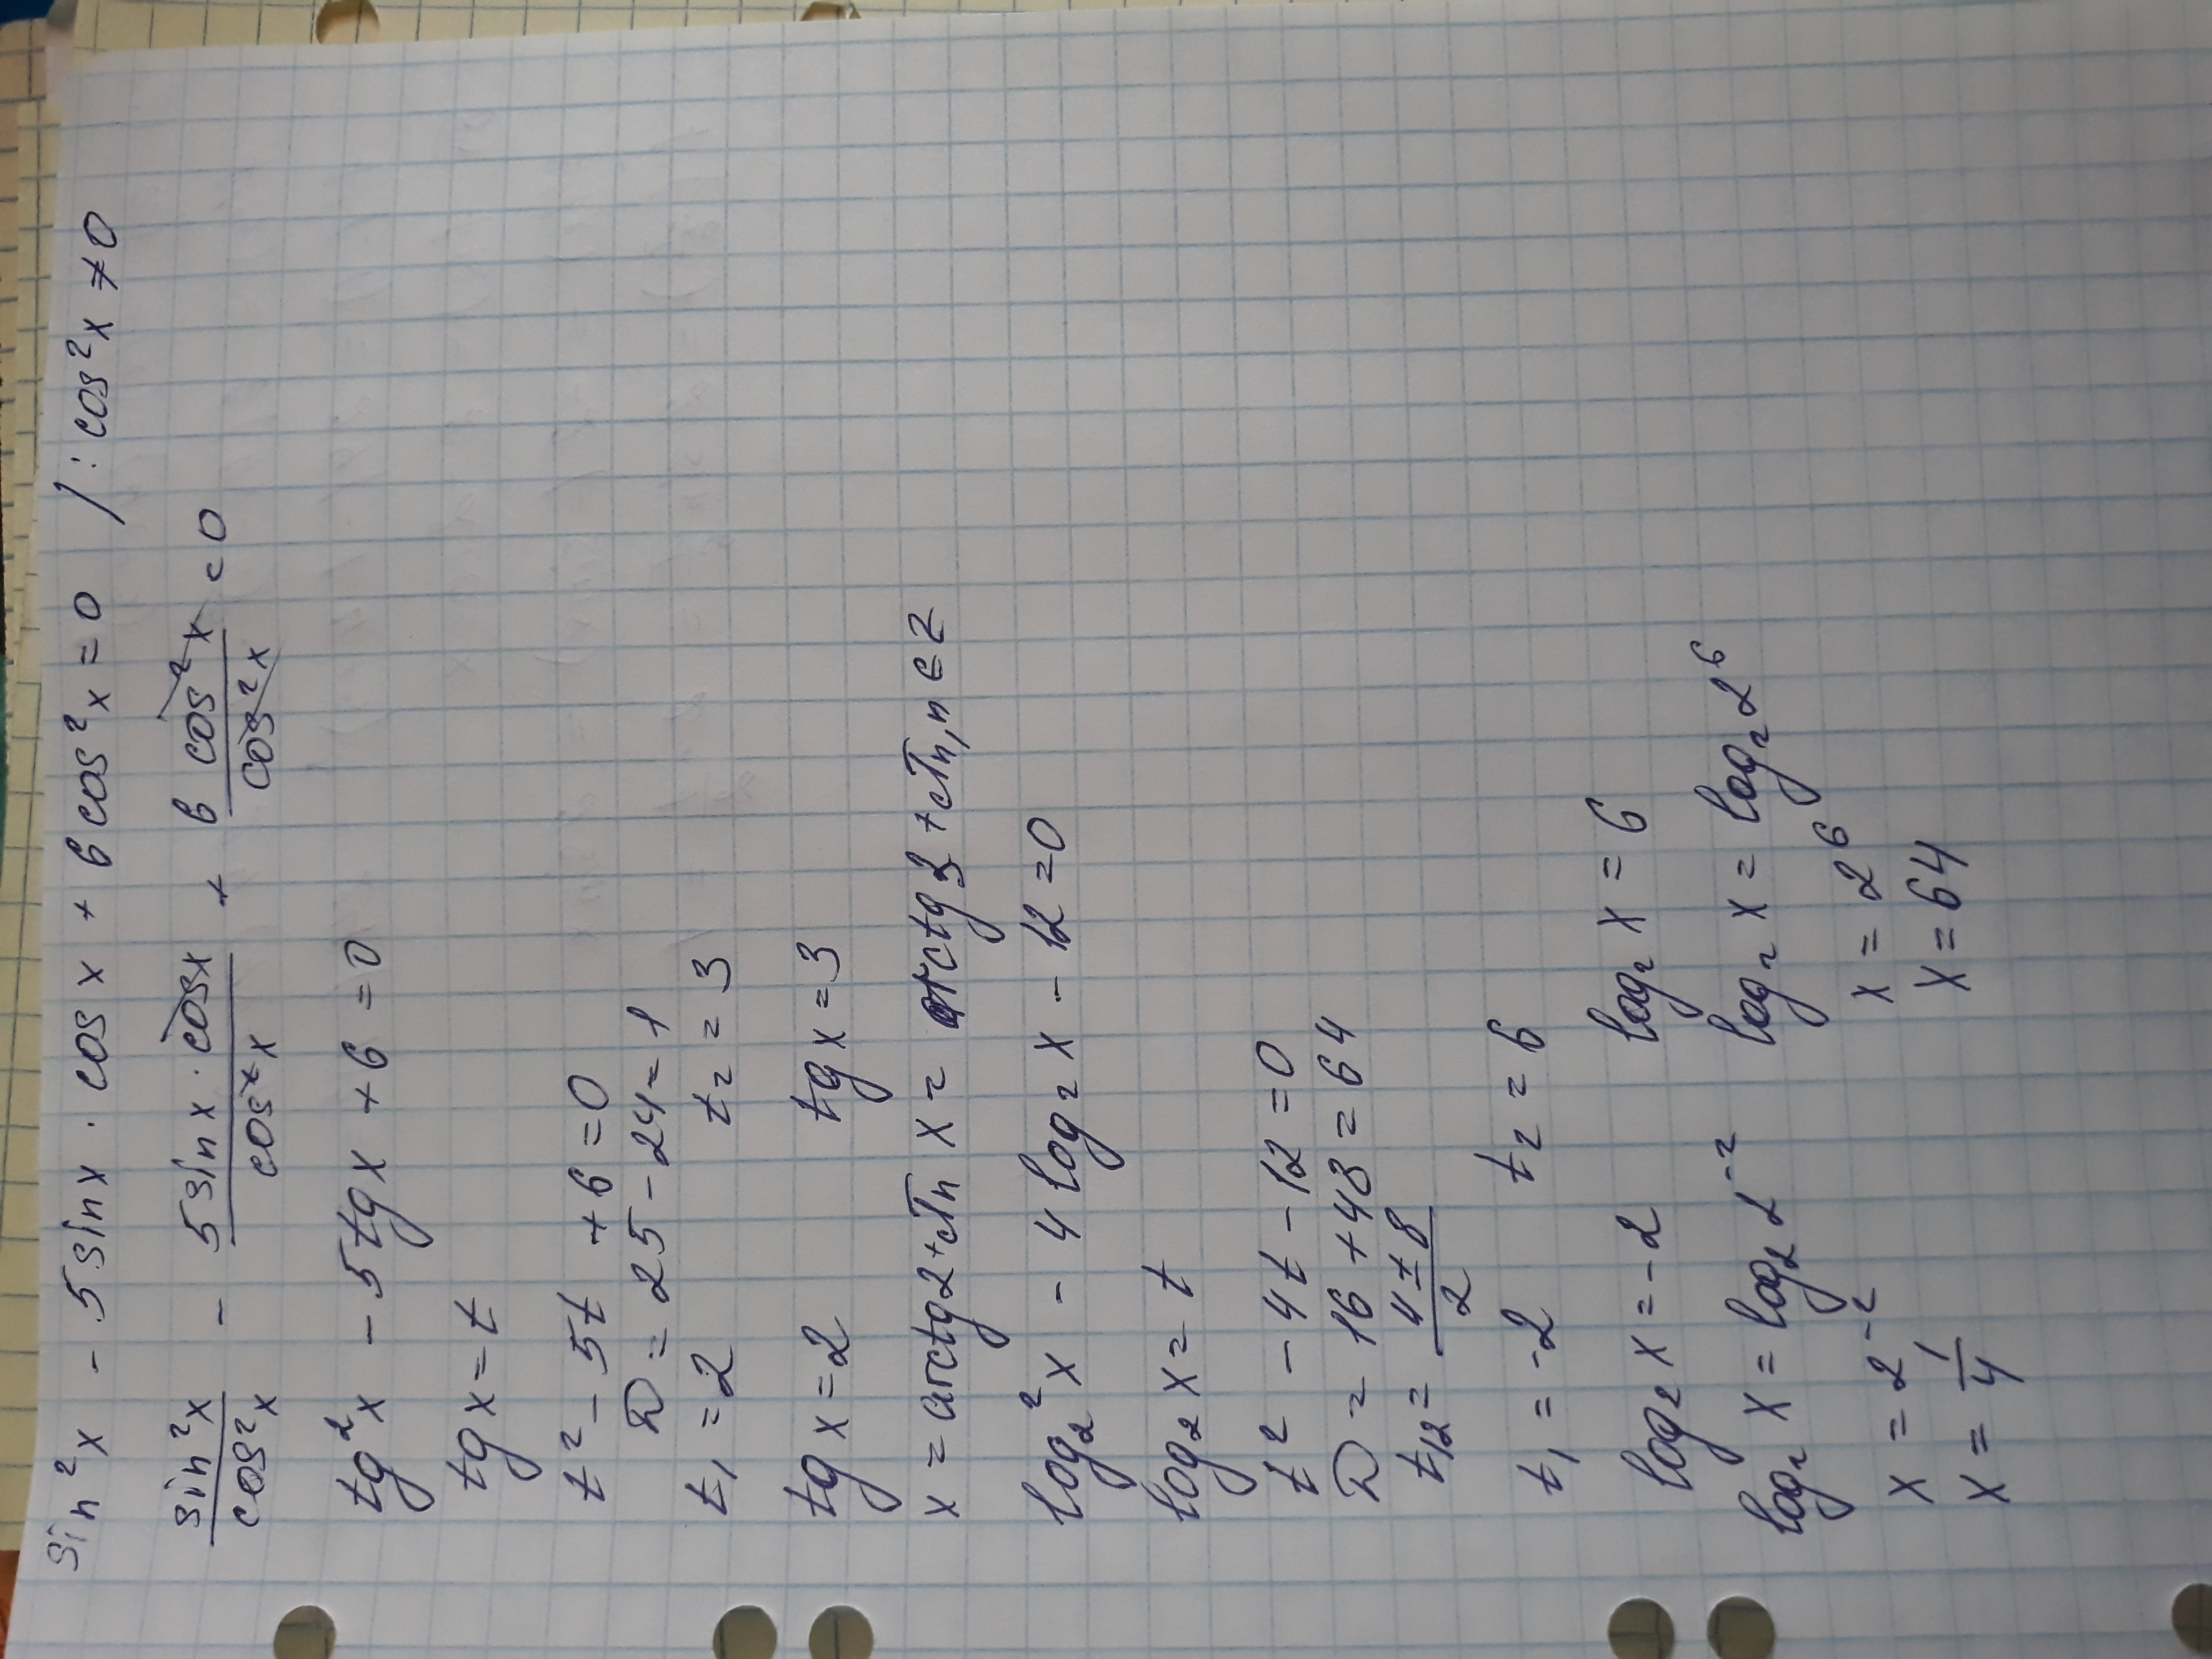 sin²x - 5 sinx · cosx + 6 cos²x = 0 / : cos²x ≠ 0
sin²x/cos²x - 5 sinx · cosx/cos²x + 6 cos²x/cos²x = 0
tg²x - 5tgx + 6 = 0
tgx = t
t² - 5t + 6 = 0
D = 25 - 24 = 1
t₁ = 2 t₂ = 3
tgx = 2 tgx = 3
x = arctg2 + πn x = arctg3 + πn, n ∈ Z
log₂²x - 4 log₂x - 12 = 0
log₂x = t
t² - 4t - 12 = 0
D = 16 + 48 = 64
t₁₂ = 4 ± 8/2
t₁ = -2 t₂ = 6
log₂x = -2 log₂x = 6
log₂x = log₂2⁻² log₂x = log₂2⁶
x = 2⁻² x = 2⁶
x = 1/4 x = 64